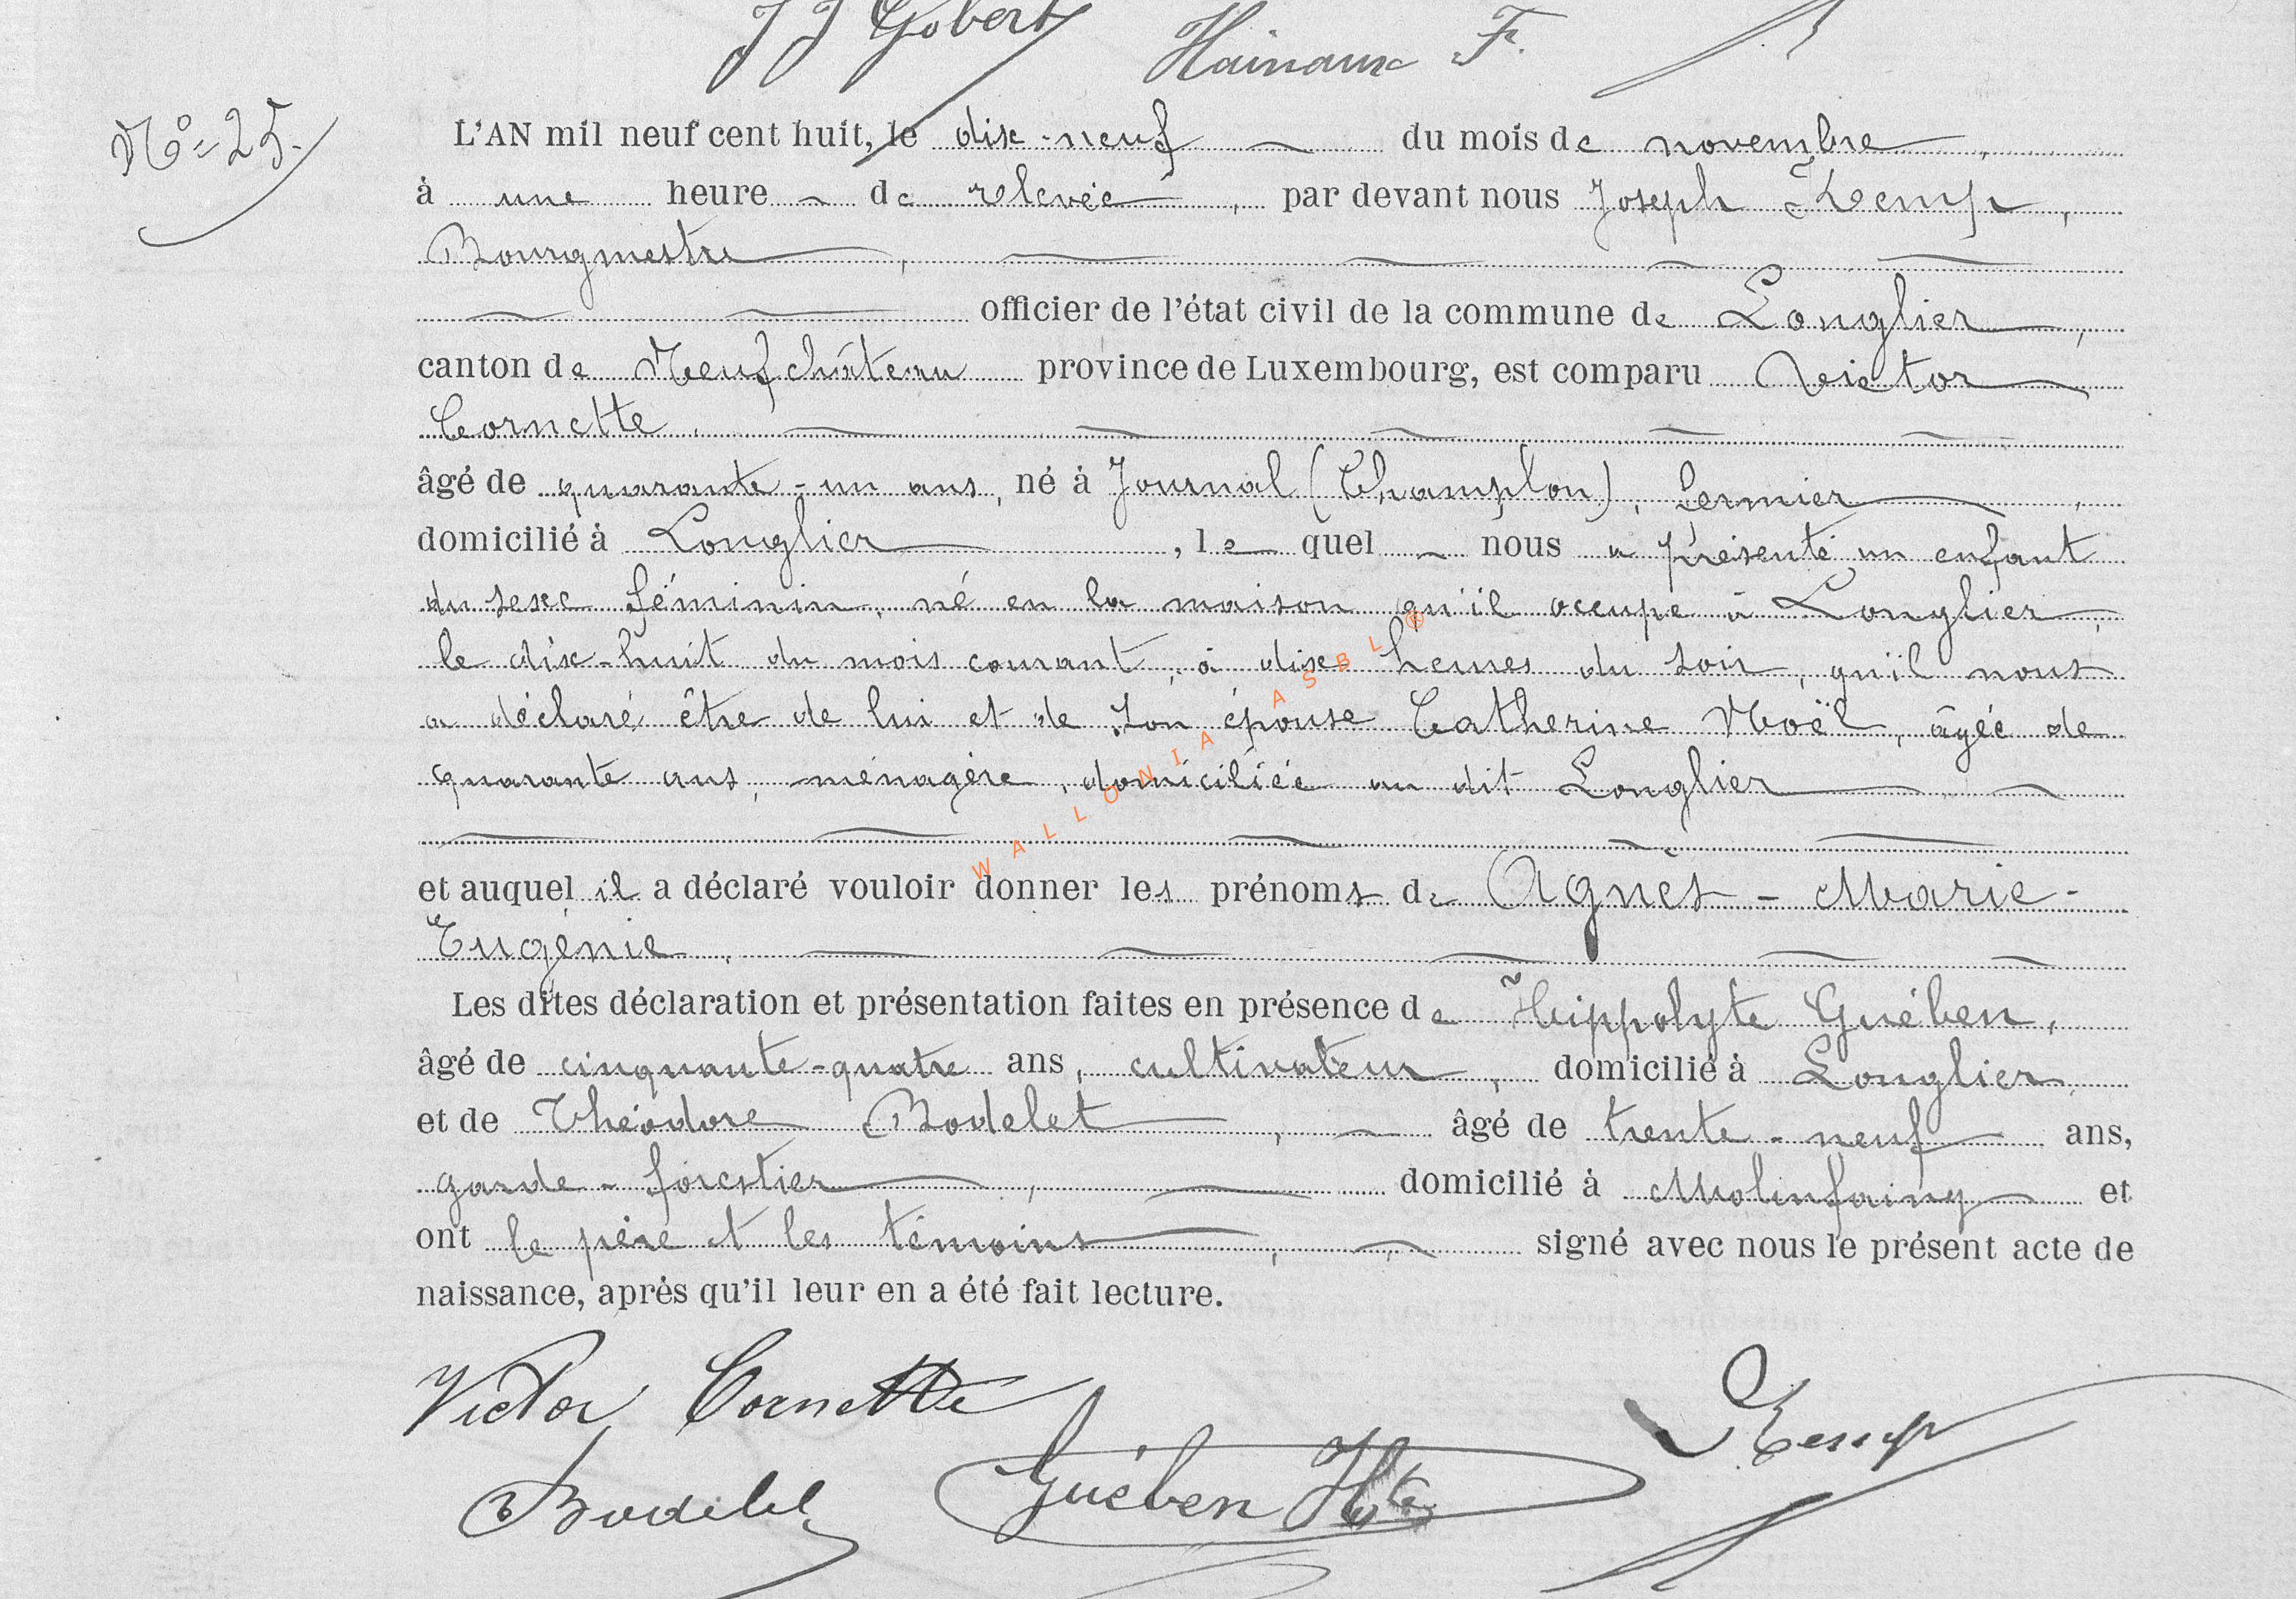 J J Gobert Hainaux F.
Nº 25.
L'AN mil neuf cent huit, le dix-neuf du mois de novembre,
à une heure de relevée, par devant nous Joseph Kemp,
Bourgmestre,
officier de l'état civil de la commune de Longlier,
canton de Neufchâteau province de Luxembourg, est comparu Victor
Cornette,
âgé de quarante-un ans, né à Journal (Champlon), fermier,
domicilié à Longlier, lequel nous a présenté un enfant
du sexe féminin, né en la maison qu'il occupe à Longlier,
le dix-huit du mois courant, à dix heures du soir, qu'il nous
a déclaré être de lui et de son épouse Catherine Noël, âgée de
quarante ans, ménagère, domiciliée au dit Longlier
et auquel il a déclaré vouloir donner les prénoms de Agnès-Marie-
Eugénie,
Les dites déclaration et présentation faites en présence de Hippolyte Guében,
âgé de cinquante-quatre ans, cultivateur, domicilié à Longlier,
et de Théodore Bodelet, âgé de trente-neuf ans,
garde-forestier, domicilié à Molinfaing et
ont le père et les témoins, signé avec nous le présent acte de
naissance, après qu'il leur en a été fait lecture.
Victor Cornette
Kemp
Bodelet Guében Hte
WALLONIA ASBL ®